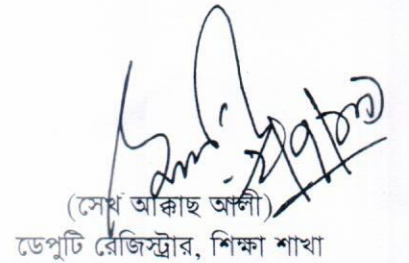 (সেখ আক্কাছ আলী)
ডেপুটি রেজিস্ট্রার, শিক্ষা শাখা